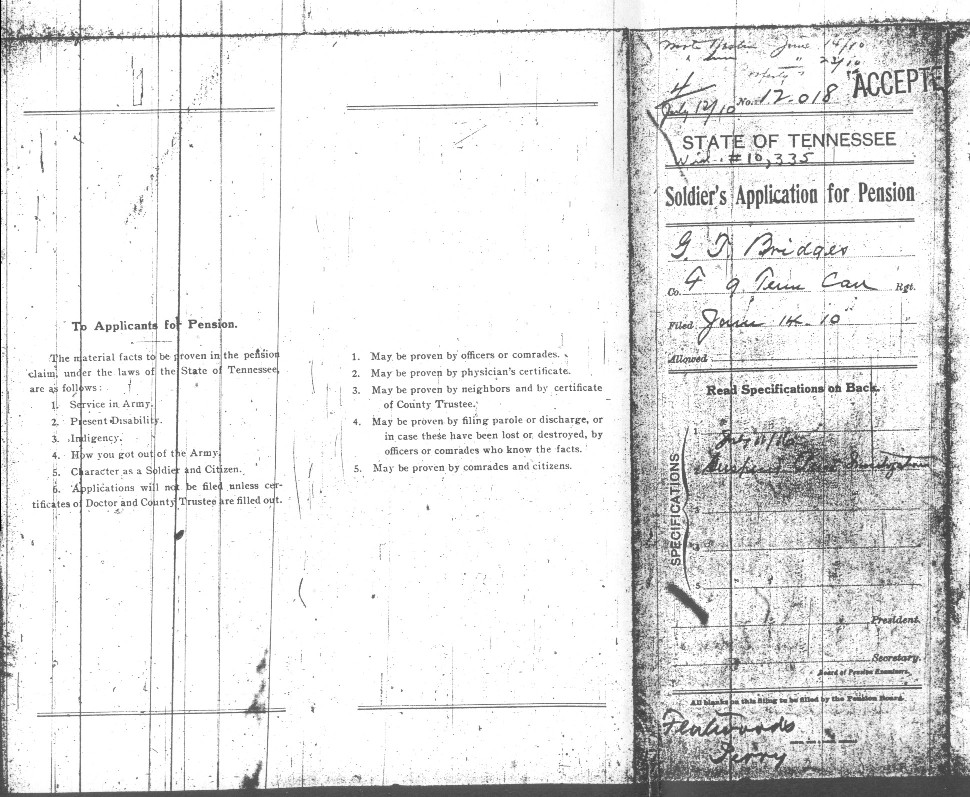 To Applicants for Pension.
The material facts to be proven in the pension
claim, under the laws of the State of Tennessee,
are as follows:
1. Service in Army.
2. Present Disability.
3. Indigency.
4. How you got out of the Army.
5. Character as a Soldier and Citizen.
6. Applications will not be filed unless cer-
tificates of Doctor and County Trustee are filled out.
1. May be proven by officers or comrades.
2. May be proven by physician's certificate.
3. May be proven by neighbors and by certificate
of County Trustee.
4. May be proven by filing parole or discharge, or
in case these have been lost or destroyed, by
officers or comrades who know the facts.
5. May be proven by comrades and citizens.
June 14/10
" 22/10
4
ACCEPTE
July 12/10 No. 12-018
STATE OF TENNESSEE
Wid. #10,335
Soldier's Application for Pension
G. T. Bridges
Co. F 9 Tenn Cav Rgt.
Filed June 14-10
Allowed
Read Specifications on Back.
SPECIFICATIONS
1
July 11/10
3
4
5
President.
Secretary.
Board of Pension Examiners.
All blanks on this filing to be filled by the Pension Board.
Flatwoods
Perry